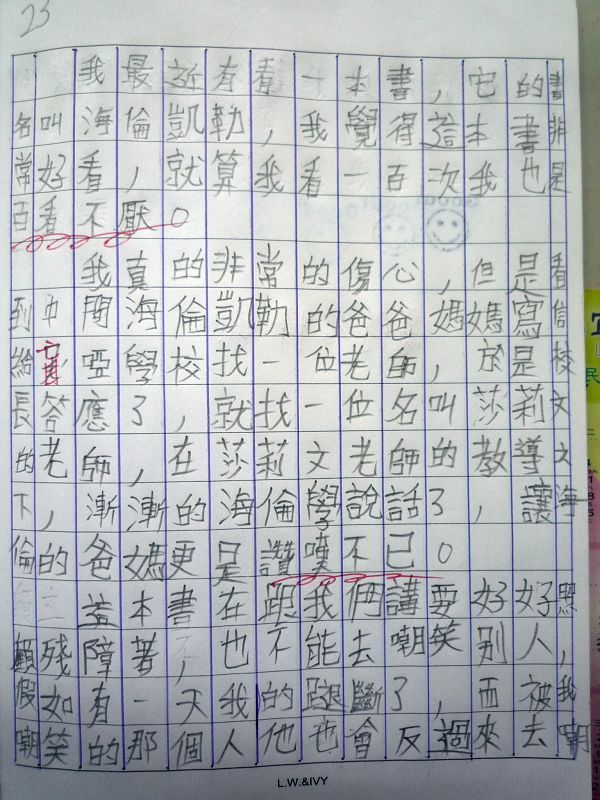 23
我最近有看一本書，它的書
名叫海倫凱勒，我覺得這本書非
常好看，就算我看一百次我也是
百看不厭。
我真的非常的傷心，但是看
到中間海倫凱勒的爸爸媽媽寫信
給盲啞學校找一位老師，於是校
長答應了，就找一位名叫莎莉文
的老師，在莎莉文老師的教導之
下，漸漸的海倫學說話了，讓海
倫的爸媽更是讚嘆不已。
這本書在跟我們講要好好照
顧殘障著，也不能去嘲笑別人，
假如有一天我的腿斷了，而被我
嘲笑的那個人他也會反過來去嘲
L.W.&IVY